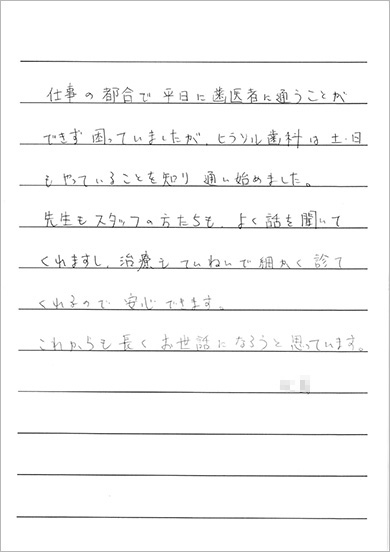 仕事の都合で平日に歯医者に通うことが
できず困っていましたが、ヒラソル歯科は土・日
もやっていることを知り通い始めました。
先生もスタッフの方たちも、よく話を聞いて
くれますし、治療もていねいで細かく診て
くれるので安心できます。
これからも長くお世話になろうと思っています。